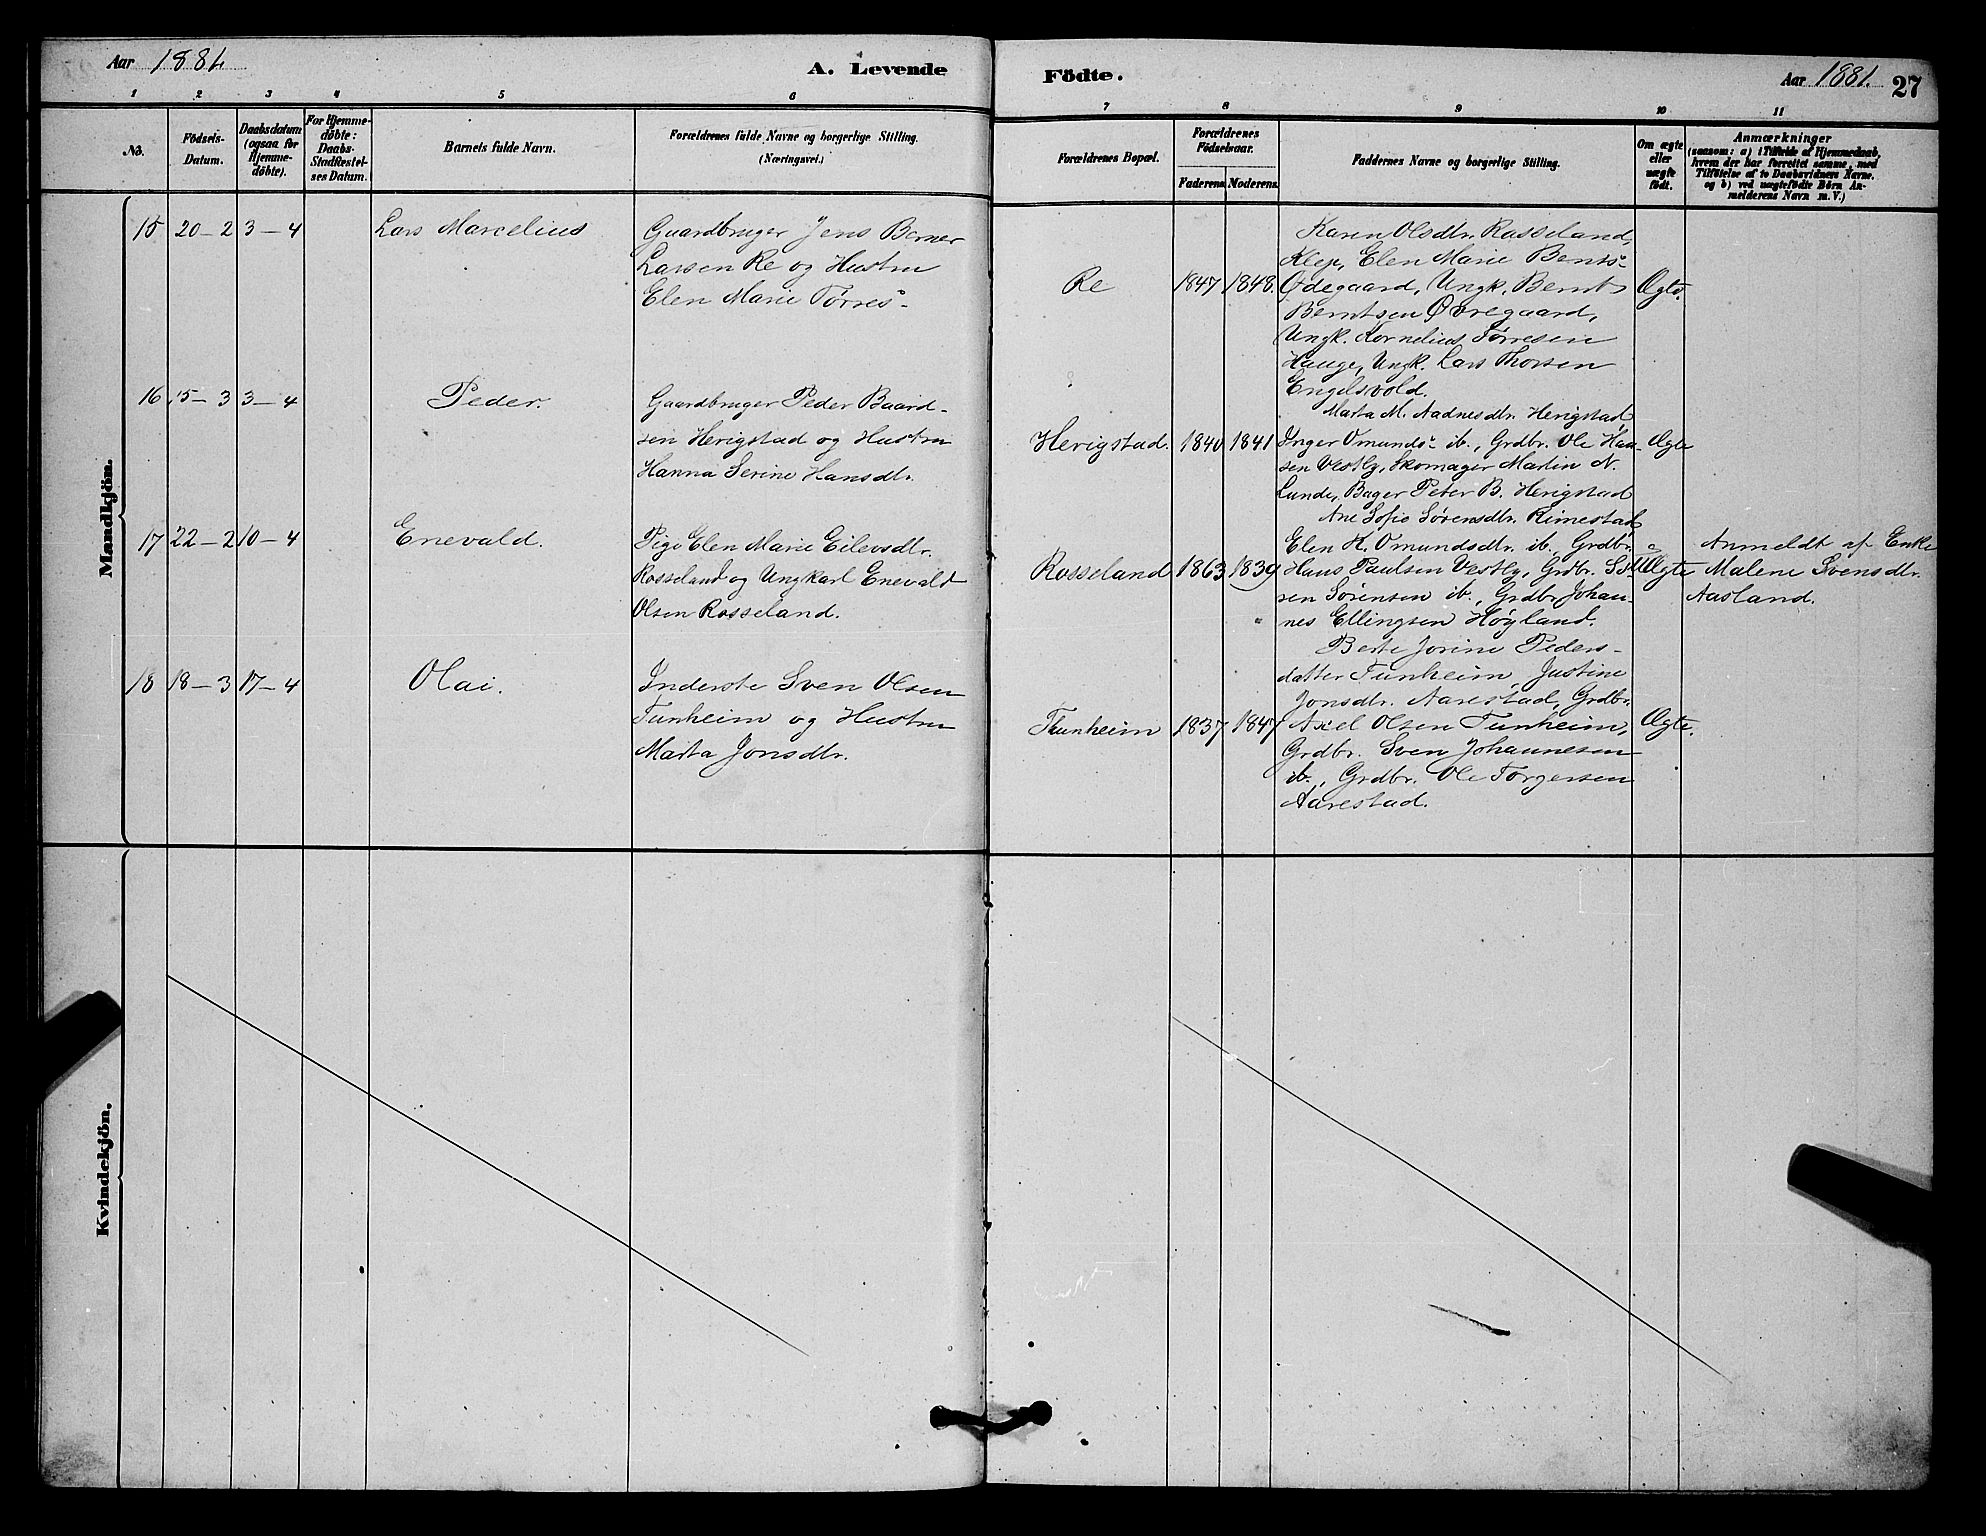 Aar 1881
A. Levende
Födte.
Aar 1881.
27
1 2 3 4 5 6
7 8 9 10 11
No.
Födsels-
Datum.
Daabsdatum
(ogsaa for
Hjemme-
döbte).
For Hjemme-
döbte:
Daabs-
Stadfæstel-
ses Datum.
Barnets fulde Navn.
Forældrenes fulde Navne og borgerlige Stilling.
(Næringsvei.)
Forældrenes Bopæl.
Forældrenes
Födselsaar.
Faderens. Moderens.
Faddernes Navne og borgerlige Stilling.
Om ægte
eller
uægte
födt.
Anmærkninger
(saasom: a) i Tilfælde af Hjemmedaab,
hvem der har forrettet samme, med
Tilföielse af to Daabsvidners Navne.
og b) ved uægtefödte Börn An-
melderens Navn m.V.)
Mandkjön.
15 20-2 3-4
Lars Marcelius
Gaardbruger Jens Berner
Larsen Re og Hustru
Elen Marie Tørres-
Re 1847 1848.
Karen Olsdtr. Rosseland,
Klep, Elen Marie Bents-
Ødegaard, Ungk. Bernt
Berntsen Øvregaard,
Ungk. Kornelius Tørresen
Hauge, Ungk. Lars Thorsen
Engelsvold.
Ægte.
16 15-3 3-4
Peder.
Gaardbruger Peder Baard-
sen Herigstad og Hustru
Hanna Serine Hansdtr.
Herigstad. 1840 1841
Marta M. Aadnesdtr. Herigstad
Inger Omunds- ib., Grdbr. Ole Han-
sen Vestly, Skomager Martin N.
Lunde, Bager Peter B. Herigstad
Ægte
17 22-2 10-4
Enevald.
Pige Elen Marie Eilevsdtr.
Rosseland og Ungkarl Enevald
Olsen Rosseland.
Rosseland 1863 1839
Ane Sofie Sørensdtr. Rimestad
Elen H. Omundsdtr. ib., Grdbr.
Hans Paulsen Vestly, Grdbr. Sö-
ren Sörensen ib., Grdbr. Johan-
nes Ellingsen Høyland.
Uægte
Anmeldt af Enke
Malene Svensdtr.
Aasland.
18 18-3 17-4
Olai.
Inderste Sven Olsen
Tunheim og Hustru
Marta Jonsdtr.
Thunheim 1837 1847
Berte Jorine Peders-
datter Tunheim, Justine
Jonsdtr. Aarestad, Grdbr.
Axel Olsen Tunheim,
Grdbr. Sven Johannesen
ib., Grdbr. Ole Torgersen
Aarestad.
Ægte.
Kvindekjön.